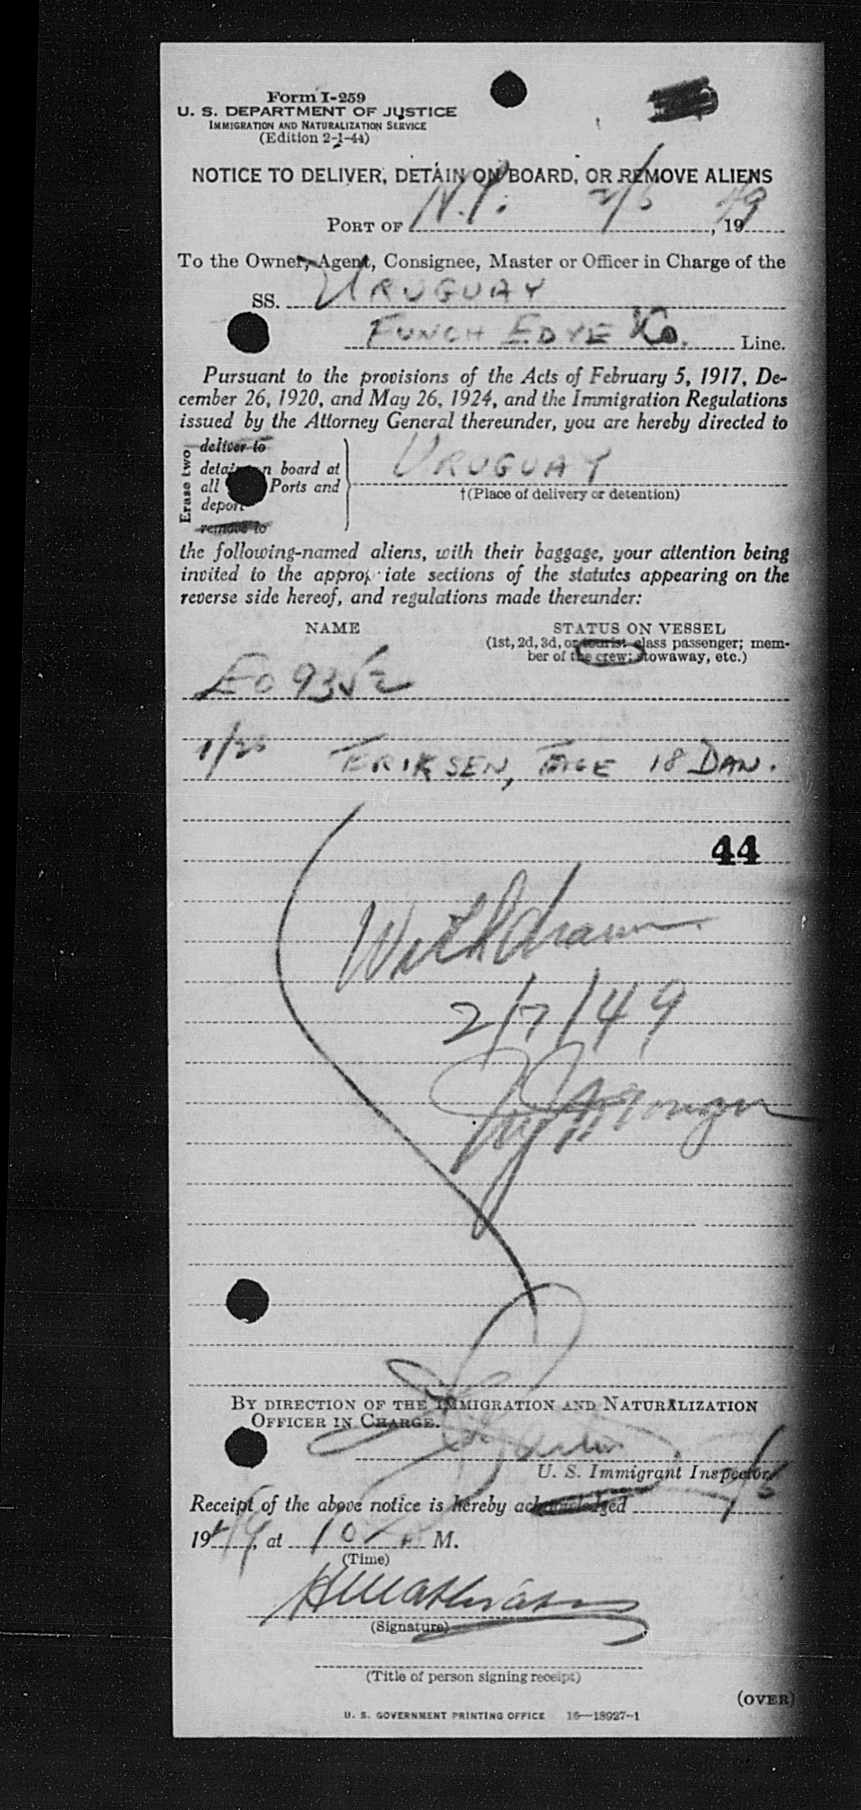 Form I-259
U. S. DEPARTMENT OF JUSTICE
IMMIGRATION AND NATURALIZATION SERVICE
(Edition 2-1-44)
NOTICE TO DELIVER, DETAIN ON BOARD, OR REMOVE ALIENS
PORT OF N.Y. 2/6, 1949
To the Owner, Agent, Consignee, Master or Officer in Charge of the
SS. URUGUAY
FUNCH EDYE & Co. Line.
Pursuant to the provisions of the Acts of February 5, 1917, De-
cember 26, 1920, and May 26, 1924, and the Immigration Regulations
issued by the Attorney General thereunder, you are hereby directed to
Erase two
deliver to
detain on board at
all Ports and
deport
remove to
URUGUAY
†(Place of delivery or detention)
the following-named aliens, with their baggage, your attention being
invited to the appropriate sections of the statutes appearing on the
reverse side hereof, and regulations made thereunder:
NAME STATUS ON VESSEL
(1st, 2d, 3d, or tourist class passenger; mem-
ber of the crew; stowaway, etc.)
EO 9352
1/20 ERIKSEN, TAGE 18 DAN.
44
Withdrawn
2/7/49
BY DIRECTION OF THE IMMIGRATION AND NATURALIZATION
OFFICER IN CHARGE.
U. S. Immigrant Inspector.
Receipt of the above notice is hereby acknowledged 2/6
1949, at 10 A M.
(Time)
(Signature)
(Title of person signing receipt)
(OVER)
U. S. GOVERNMENT PRINTING OFFICE 16—18927-1